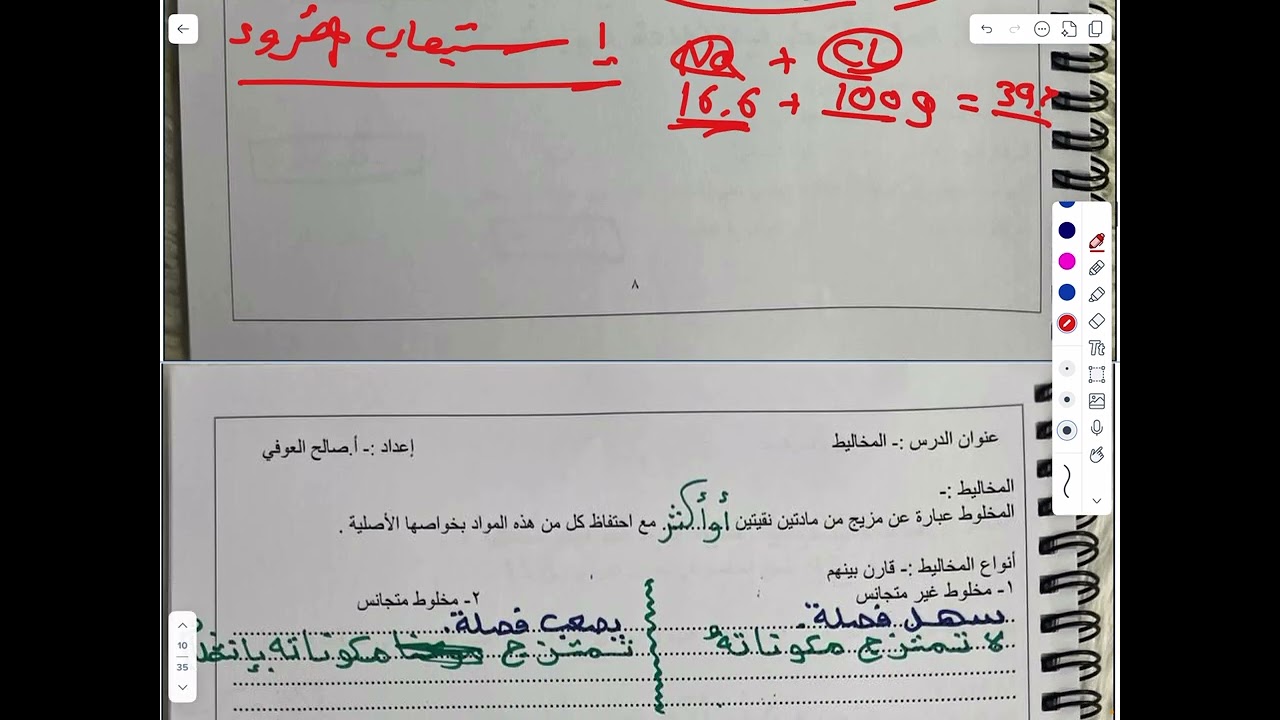 إستيعاب مفرود
Na + Cl
16.6 + 100g = 39.
٨
عنوان الدرس :- المخاليط
إعداد :- أ.صالح العوفي
المخاليط :-
المخلوط عبارة عن مزيج من مادتين نقيتين أو أكثر مع احتفاظ كل من هذه المواد بخواصها الأصلية .
أنواع المخاليط :- قارن بينهم
١- مخلوط غير متجانس
٢- مخلوط متجانس
سهل فصلة.
يصعب فصلة.
لا تمتزج مكوناتهُ
تمتزج مكوناته
Tt
10
35